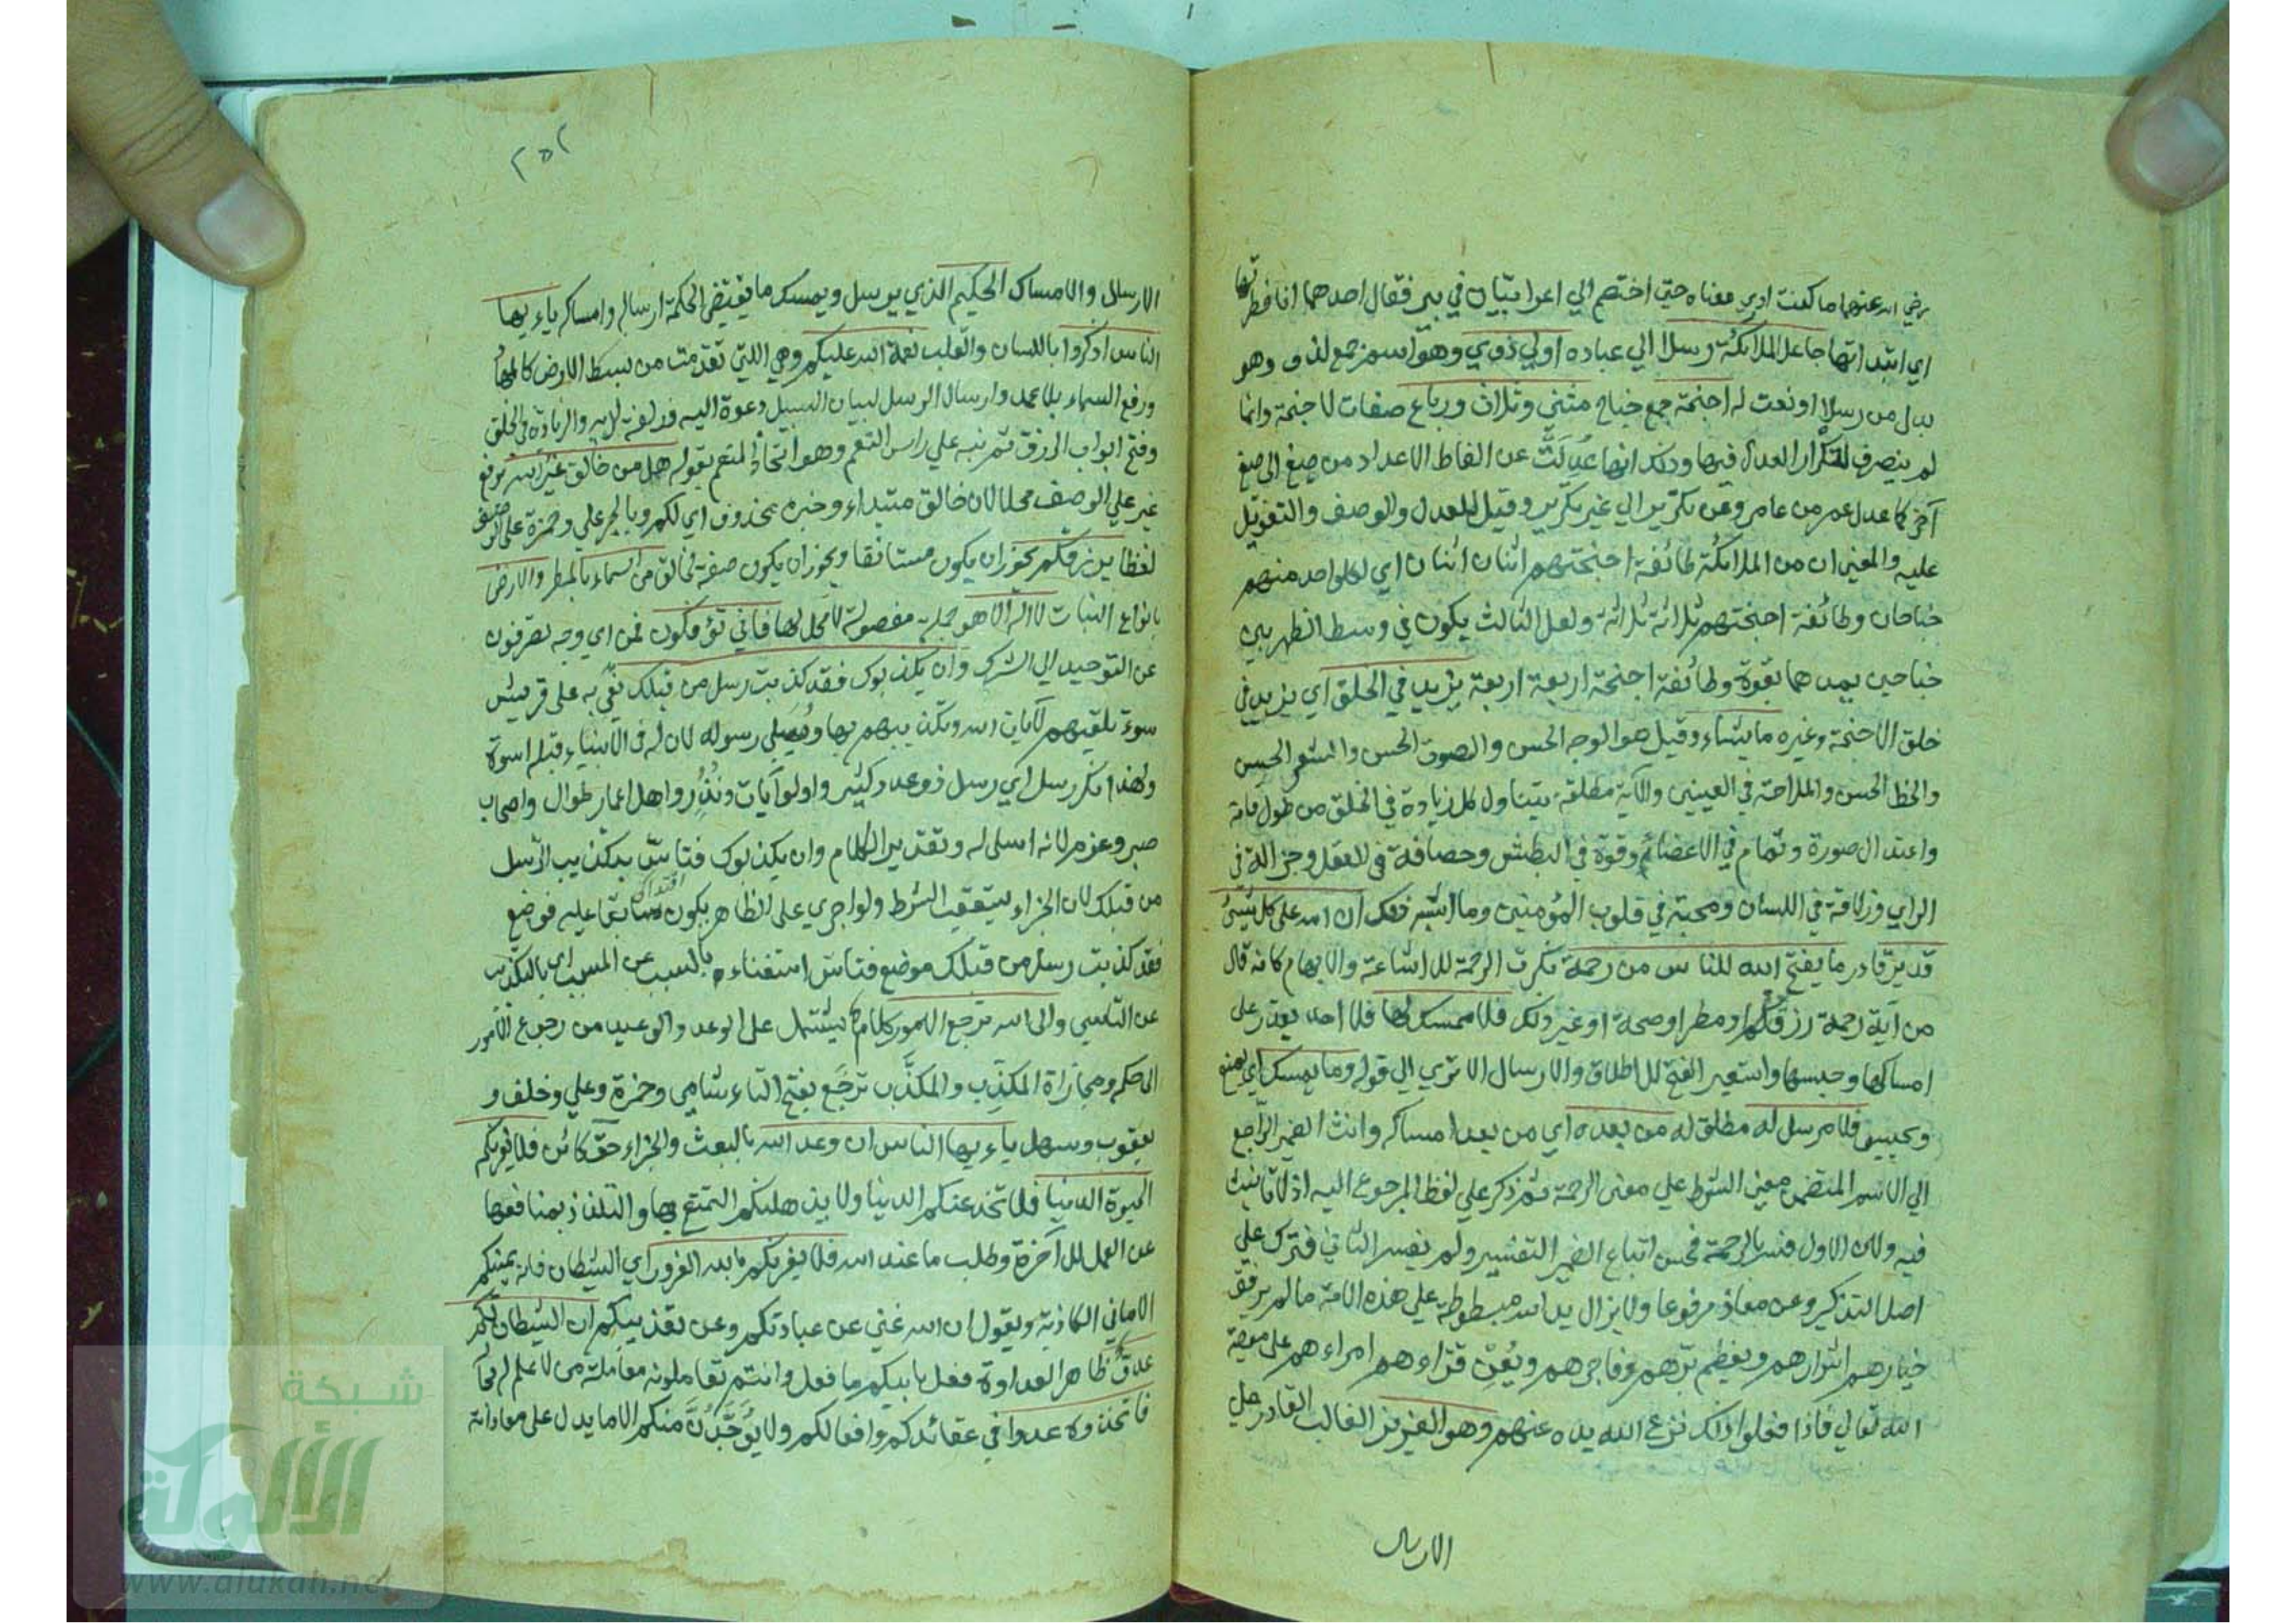 رضي الله عنهما ما كنت ادري معناه حتى اختصم الي اعرابيان في بير فقال احدهما انا فطرتها
اي ابتداتها جاعل الملائكة رسلا الي عباده اولي ذوي وهو اسم جمع لذو وهو
بدل من رسلا او نعت له اجنحة جمع جناح مثني وثلاث ورباع صفات لاجنحة وانما
لم ينصرف لتكرار العدل فيها وذلك انها عُدِلَتْ عن الفاظ الاعداد من صيغ الي صيغ
آخر كما عدل عمر من عامر وعن تكرير الي غير تكرير وقيل للعدل والوصف والتعويل
عليه والمعني ان من الملائكة طائفة اجنحتهم اثنان اثنان اي لكل واحد منهم
جناحان وطائفة اجنحتهم ثلاثة ثلاثة ولعل الثالث يكون في وسط الظهر بين
جناحين يمدهما بقوة وطائفة اجنحة اربعة اربعة يزيد في الخلق اي يزيد في
خلق الاجنحة وغيره ما يشاء وقيل هو الوجه الحسن والصوت الحسن والشعر الحسن
والخط الحسن والملاحة في العينين والآية مطلقة يتناول كل زيادة في الخلق من طول قامة
واعتدال صورة وتمام في الاعضاء وقوة في البطش وحصافة في العقل وجزالة في
الراي وزلاقة في اللسان ومحبة في قلوب المؤمنين وما اشبه ذلك ان الله على كل شيئ
قدير قادر ما يفتح الله للناس من رحمة نكرت الرحمة للاشاعة والابهام كانه قال
من آية رحمة رزق او مطر او صحة او غير ذلك فلا ممسك لها فلا احد يقدر على
امساكها وحبسها واستعير الفتح للاطلاق والارسال الا تري الى قوله وما يمسك اي يمنع
ويحبس فلا مرسل له مطلق له من بعده اي من بعد امساكه وانث الضمير الراجع
الي الاسم المتضمن معنى الشرط علي معنى الرحمة ثم ذكر علي لفظ المرجوع اليه اذ لا تانيث
فيه ولان الاول فسر بالرحمة فحسن اتباع الضمير التفسير ولم يفسر الثاني فترك علي
اصل التذكير وعن معاذ مرفوعا ولا يزال يد الله مبسوطة علي هذه الامة ما لم يرفق
خيارهم اشرارهم ويعظم برهم فاجرهم ويُعِنْ قراءهم امراءهم على معصية
الله تعالي فاذا فعلوا ذلك نزع الله يده عنهم وهو العزيز الغالب القادر علي
الارسال
٢٥٢
الارسال والامساك الحكيم الذي يرسل ويمسك ما يقتضي الحكمة ارساله وامساكه ياءيها
الناس اذكروا باللسان والقلب نعمة الله عليكم وهي اللتي تقدمت من بسط الارض كالمهاد
ورفع السماء بلا عمد وارسال الرسل لبيان السبيل دعوة اليه وزلفة لديه والزيادة في الخلق
وفتح ابواب الرزق ثم نبه علي راس النعم وهو اتحاد المنعم بقوله هل من خالق غير الله برفع
غير علي الوصف محلا لان خالق مبتداء وخبره محذوف اي لكم وبالجر علي وحمزة على الوصف
لفظا يرزقكم يجوز ان يكون مستانفا ويجوز ان يكون صفة لخالق من السماء بالمطر والارض
بانواع النبات لا اله الا هو جملة مفصولة لا محل لها فاني تؤفكون فمن اي وجه تصرفون
عن التوحيد الي الشرك وان يكذبوك فقد كذبت رسل من قبلك نعي به على قريش
سوء تلقيهم لآيات الله وتكذيبهم بها وسلي رسوله لان له في الانبياء قبله اسوة
ولهذا نكر رسل اي رسل ذو عدد كثير واولوا آيات ونُذُر واهل اعمار طوال واصحاب
صبر وعزم لانه اسلي له وتقدير الكلام وان يكذبوك فتاس بتكذيب الرسل
من قبلك لان الجزاء يتعقب الشرط ولو اجري على الظاهر يكون سابقا عليه فوضع
فقد كذبت رسل من قبلك موضع فتاس استغناء بالسبب عن المسبب اي بالتكذيب
عن التاسي والى الله ترجع الامور كلام يشتمل على الوعد والوعيد من رجوع الامور
الى حكمه ومجازاة المكذِّب والمكذَّب تَرجِع بفتح التاء شامي وحمزة وعلي وخلف و
يعقوب وسهل ياءيها الناس ان وعد الله بالبعث والجزاء حق كائن فلا تغرنكم
الحيوة الدنيا فلا تخدعنكم الدنيا ولا يذهلنكم التمتع بها والتلذذ بمنافعها
عن العمل للآخرة وطلب ما عند الله فلا يغرنكم بالله الغرور اي الشيطان فانه يمنيكم
الاماني الكاذبة ويقول ان الله غني عن عبادتكم وعن تعذيبكم ان الشيطان لكم
عدو ظاهر العداوة فعل بابيكم ما فعل وانتم تعاملونه معاملة من لا علم له
فاتخذوه عدوا في عقائدكم وافعالكم ولا يُوجَدَنَّ منكم الا ما يدل على معاداته
شبكة
الألوكة
www.alukah.net